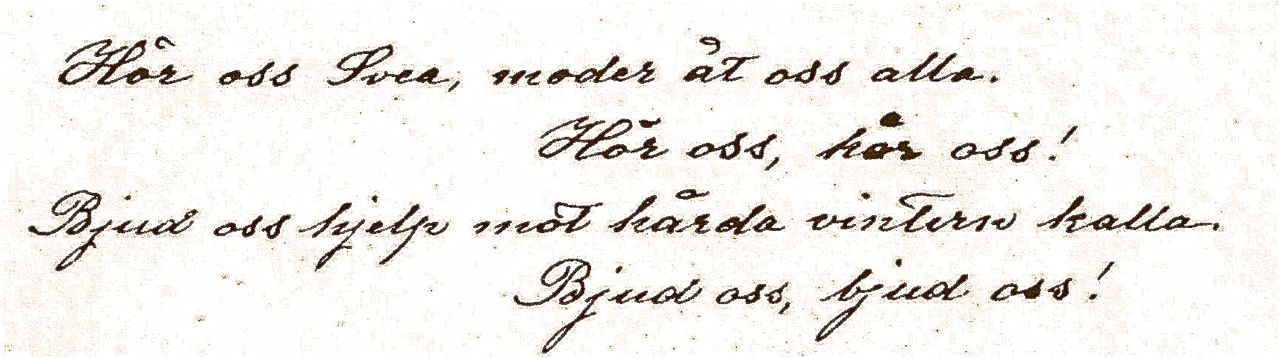 Hör oss Svea, moder åt oss alla.
Hör oss, hör oss!
Bjud oss hjelp mot hårda vintern kalla.
Bjud oss, bjud oss!